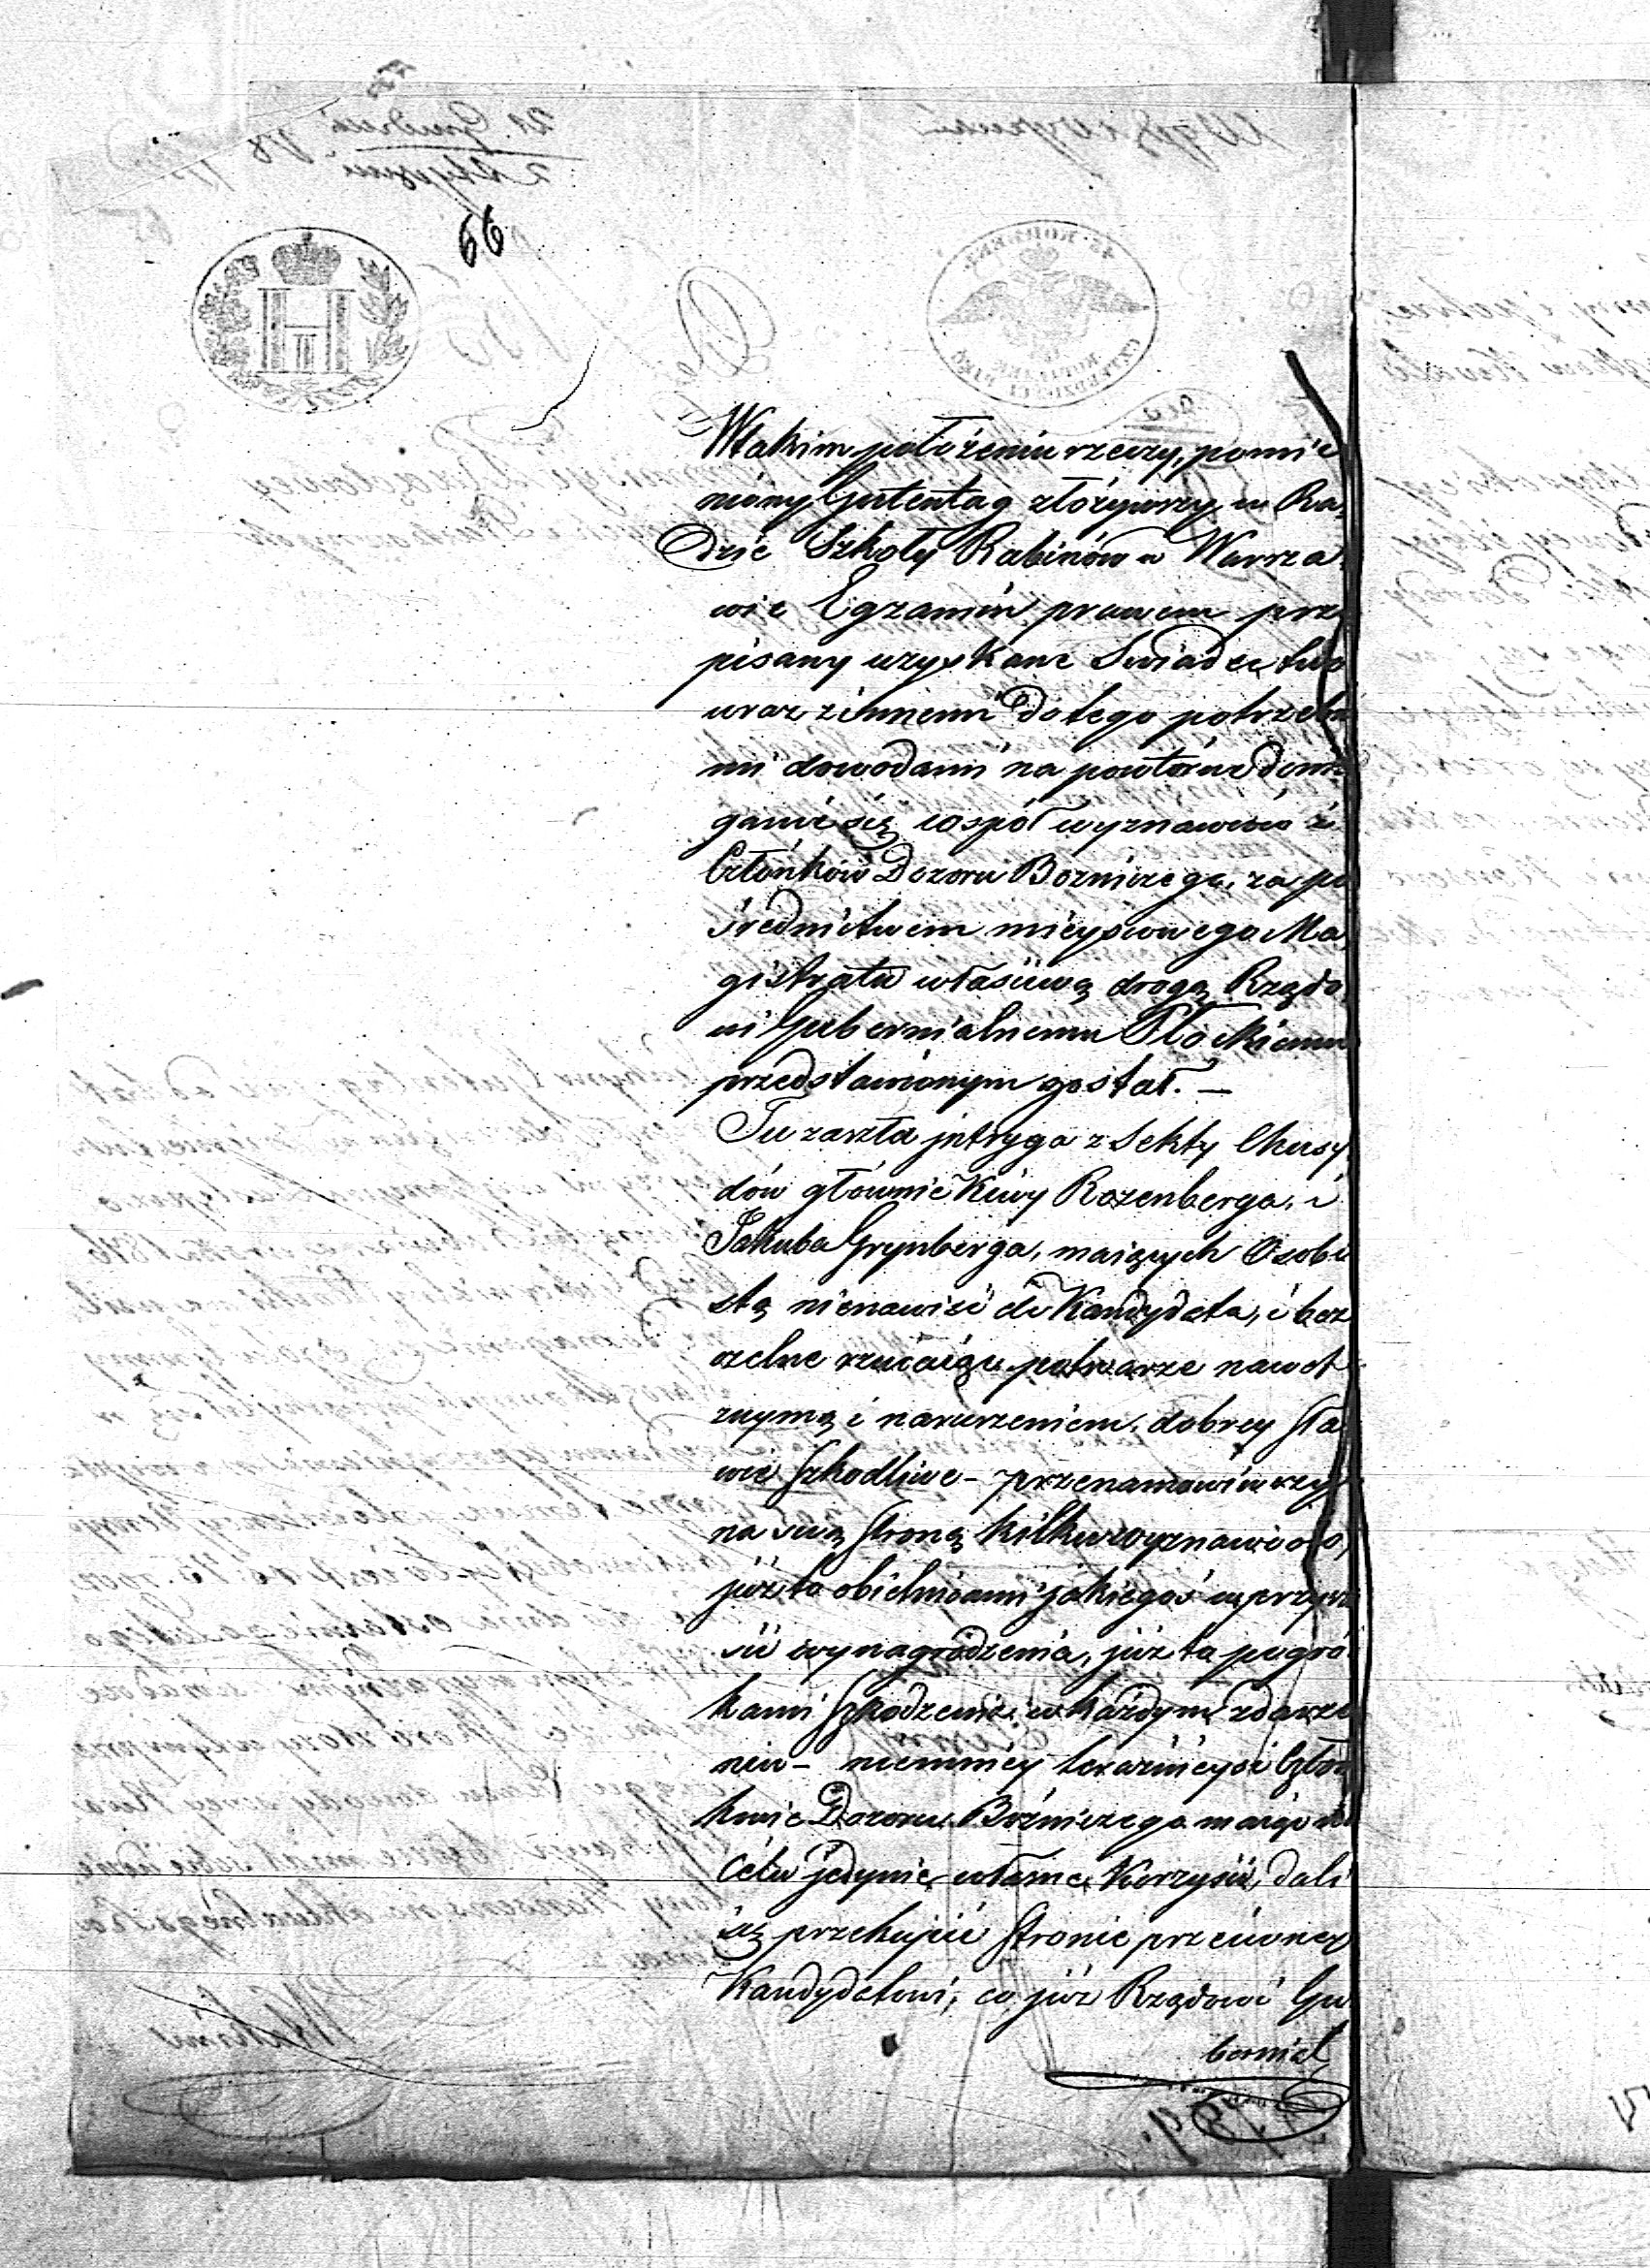 66
W takim położeniu rzeczy, pomie
niony Gutentag złożywszy w Ra,
dzie Szkoły Rabinów w Warsza,
wie Egzamin prawem prze
pisany uzyskane Swiadectwo
wraz z innemi do tego potrzebn
mi dowodami na powtórne doma
ganie się współ wyznawców i
Członków Dozoru Bozniczego, za po
średnictwem mieyscowego Ma,
gistratu właściwą drogą Rządo,
wi Gubernialnemu Płockiemu
przedstawionym został. —
Tu zaszła intryga z Sekty Chusy,
dów głównie Kiwy Rozenberga, i
Jakuba Grynberga, maiących Osobi
stą nienawiść do Kandydata, i bez
czelne rzucaiąc potwarze nawet
zmymą i naruszeniem, dobrey sła
wie szkodliwe – przenamówiwszy
na swą stroną kilku wyznawców,
już to obietnicami jakiegoś w przysz
sci wynagrodzenia, już to pogró,
kami szkodzenia w każdym zdarze
niu – niemniey teraźnieysi Człon
kowie Dozoru Bożniczego maiąc na
Celu jedynie własne Korzyści, dali
się przekupić stronie przeciwney
Kandydatowi, co już Rządowi Gu
bernial